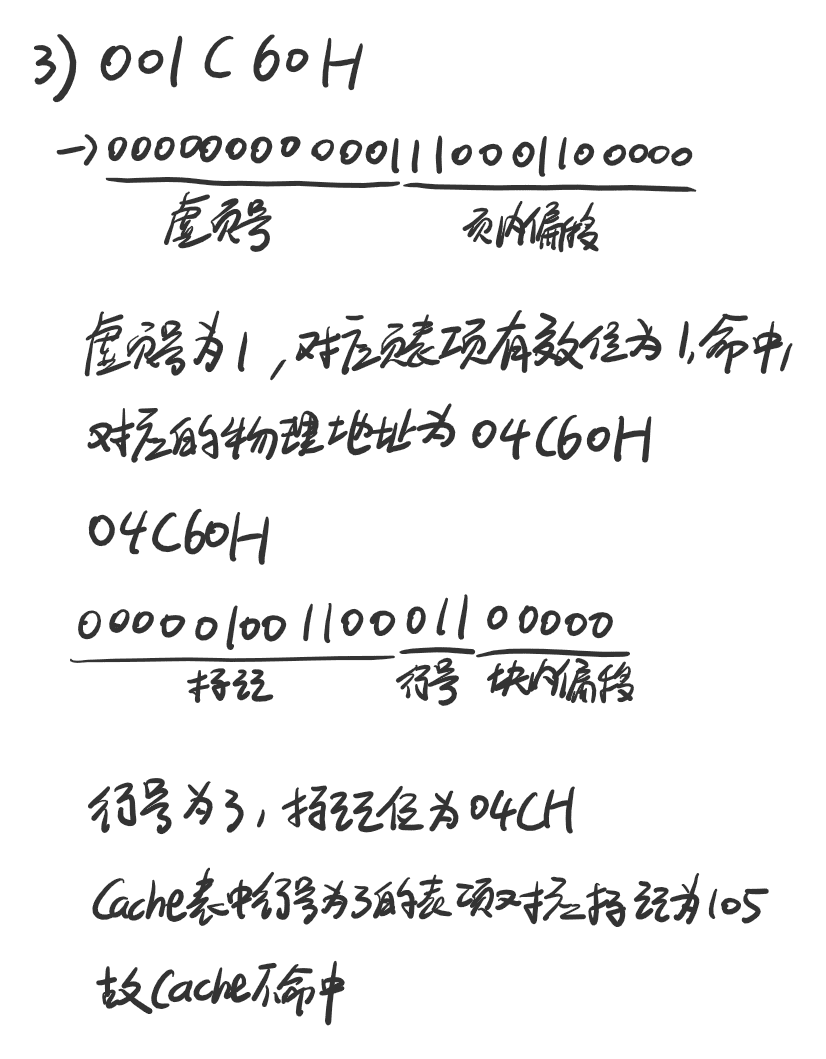 3) 001C60H
→ 00000000 0001 110001100000
虚页号 页内偏移
虚页号为1,对应页表项有效位为1,命中,
对应的物理地址为04C60H
04C60H
000001001100 011 00000
标记 行号 块内偏移
行号为3,标记位为04CH
Cache表中行号为3的表项对应标记为105
故Cache不命中